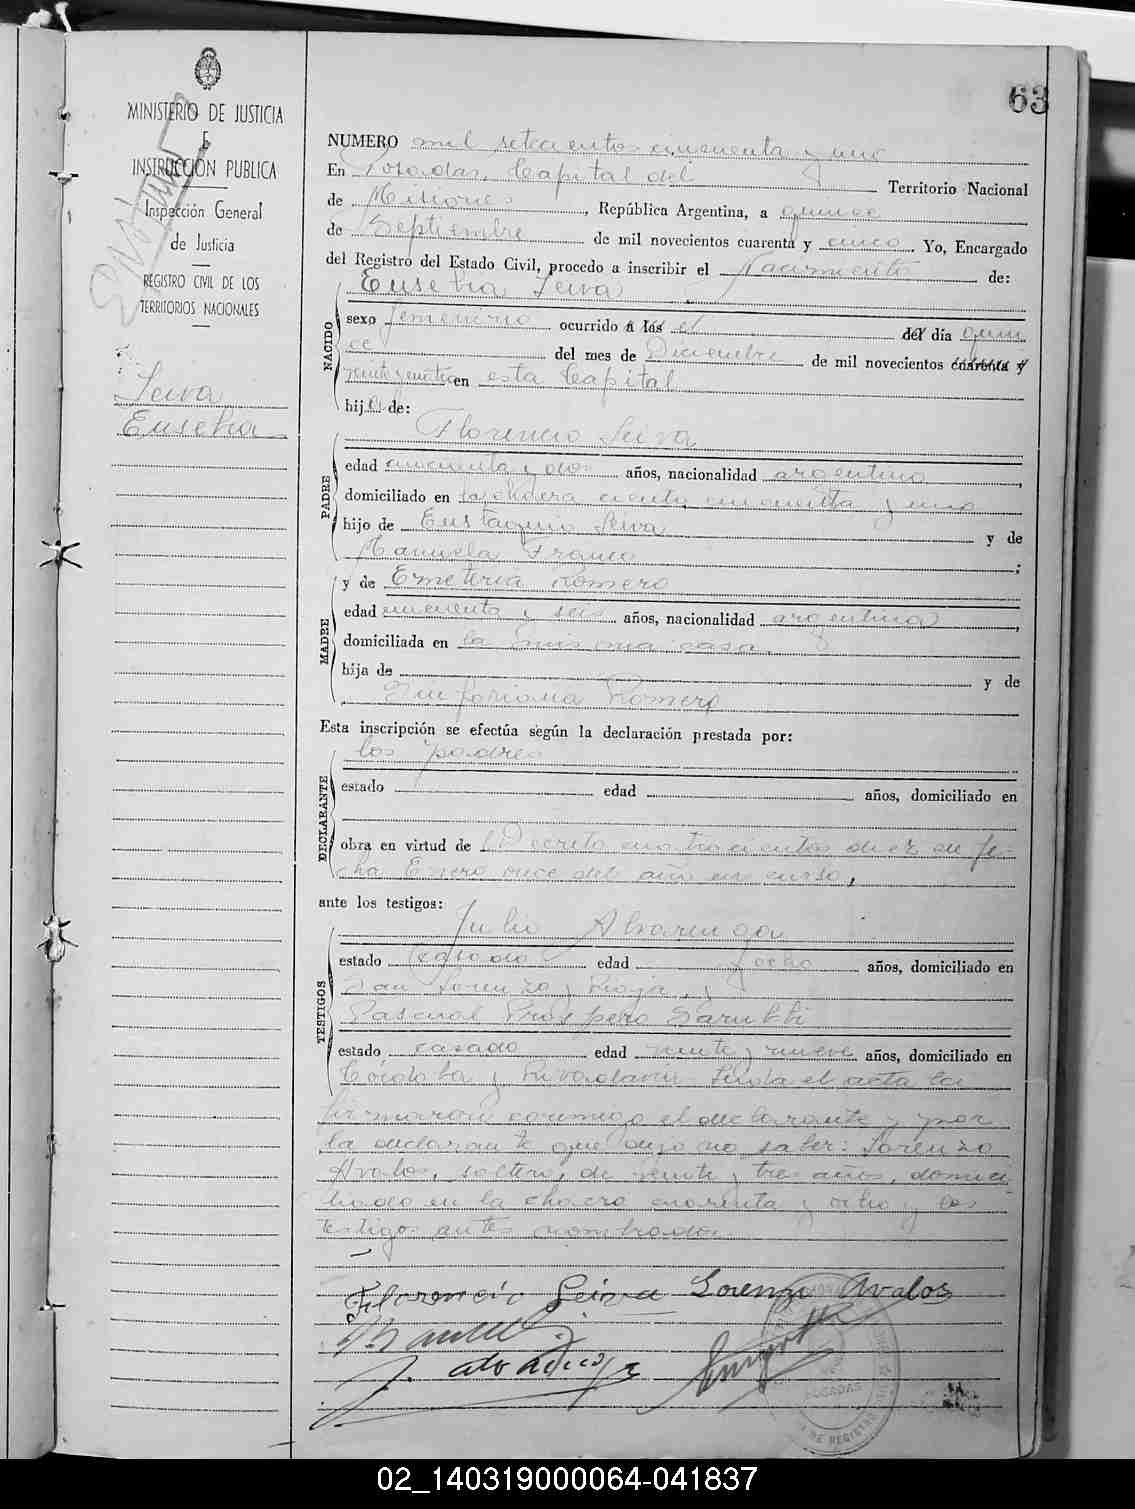 63
MINISTERIO DE JUSTICIA
E
INSTRUCCIÓN PUBLICA
Inspección General
de Justicia
REGISTRO CIVIL DE LOS
TERRITORIOS NACIONALES
Leiva
Eusebia
NUMERO mil setecientos cincuenta y uno
En Posadas, Capital del Territorio Nacional
de Misiones, República Argentina, a quince
de Septiembre de mil novecientos cuarenta y cinco. Yo, Encargado
del Registro del Estado Civil, procedo a inscribir el Nacimiento de:
Eusebia Leiva
NACIDO
sexo femenino ocurrido a las el del día quin
ce del mes de Diciembre de mil novecientos cuarenta y
en esta Capital
hija de:
Florencio Leiva
PADRE
edad cincuenta y dos años, nacionalidad argentino,
domiciliado en ciento cincuenta y uno
hijo de Eustaquio Leiva y de
Manuela Franco;
y de Emeteria Romero
MADRE
edad cincuenta y seis años, nacionalidad argentina,
domiciliada en la misma casa,
hija de y de
Sinforiana Romero
Esta inscripción se efectúa según la declaración prestada por:
los padres
DECLARANTE
estado edad años, domiciliado en
obra en virtud de Decreto cuatrocientos diez de fe-
cha Enero once del año en curso,
ante los testigos:
Julio Alvarenga
TESTIGOS
estado casado edad y ocho años, domiciliado en
San Lorenzo y Rioja, y
Pascual Prospero Sarubbi
estado casado edad veinte y nueve años, domiciliado en
Córdoba y Rivadavia Leida el acta la
firmaron conmigo el declarante y por
la declarante que dijo no saber: Lorenzo
Avalos, soltero, de veinte y tres años, domici-
liado en la chacra cuarenta y ocho y los
testigos antes nombrados.
Florencio Leiva Lorenzo Avalos
POSADAS
02_140319000064-041837